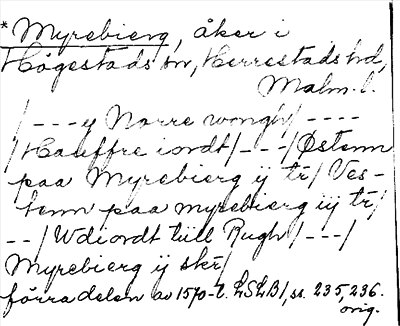 *Myrebierg, åker i
Högestads sn, Herrestads hd,
Malm. l.
/ - - - y Norre wongh / - - - -
/ Hauffre iordt / - - - / Østenn
paa Myrebierg ij tr / Ves-
tenn paa myrebierg iij tr /
- - / Wdiordt till Rugh / - - - /
Myrebierg ij skr /
förra delen av 1570-t. LSLB1, ss. 235, 236.
orig.